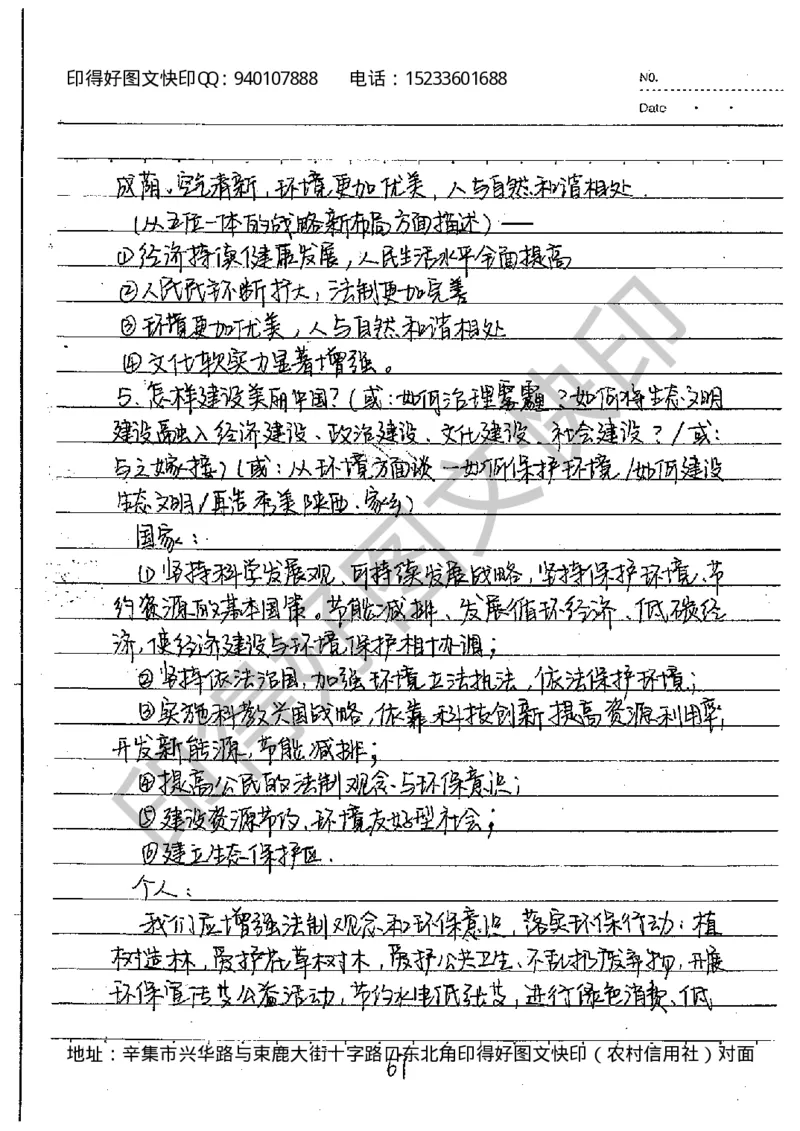 印得好图文快印QQ：940107888　电话：15233601688
NO.
Date
成荫。空气清新，环境更加优美，人与自然和谐相处.
（从五位一体的战略新布局方面描述）——
①经济持续健康发展，人民生活水平全面提高
②人民民主不断扩大，法制更加完善
③环境更加优美，人与自然和谐相处
④文化软实力显著增强。
5、怎样建设美丽中国？（或：如何治理雾霾？如何将生态文明
建设融入经济建设、政治建设、文化建设、社会建设？/或：
与之嫁接）（或：从环境方面谈—如何保护环境/如何建设
生态文明/再造秀美陕西、家乡）
国家：
①坚持科学发展观、可持续发展战略，坚持保护环境、节
约资源的基本国策。节能减排、发展循环经济、低碳经
济，使经济建设与环境保护相协调；
②坚持依法治国，加强环境立法执法，依法保护环境；
③实施科教兴国战略，依靠科技创新提高资源利用率，
开发新能源，节能减排；
④提高公民的法制观念与环保意识；
⑤建设资源节约、环境友好型社会；
⑥建立生态保护区.
个人：
我们应增强法制观念和环保意识，落实环保行动：植
树造林，爱护花草树木，爱护公共卫生、不乱扔废弃物，开展
环保宣传等公益活动，节约水电纸张等，进行绿色消费、低
地址：辛集市兴华路与束鹿大街十字路口东北角印得好图文快印（农村信用社）对面
61
印得好图文快印